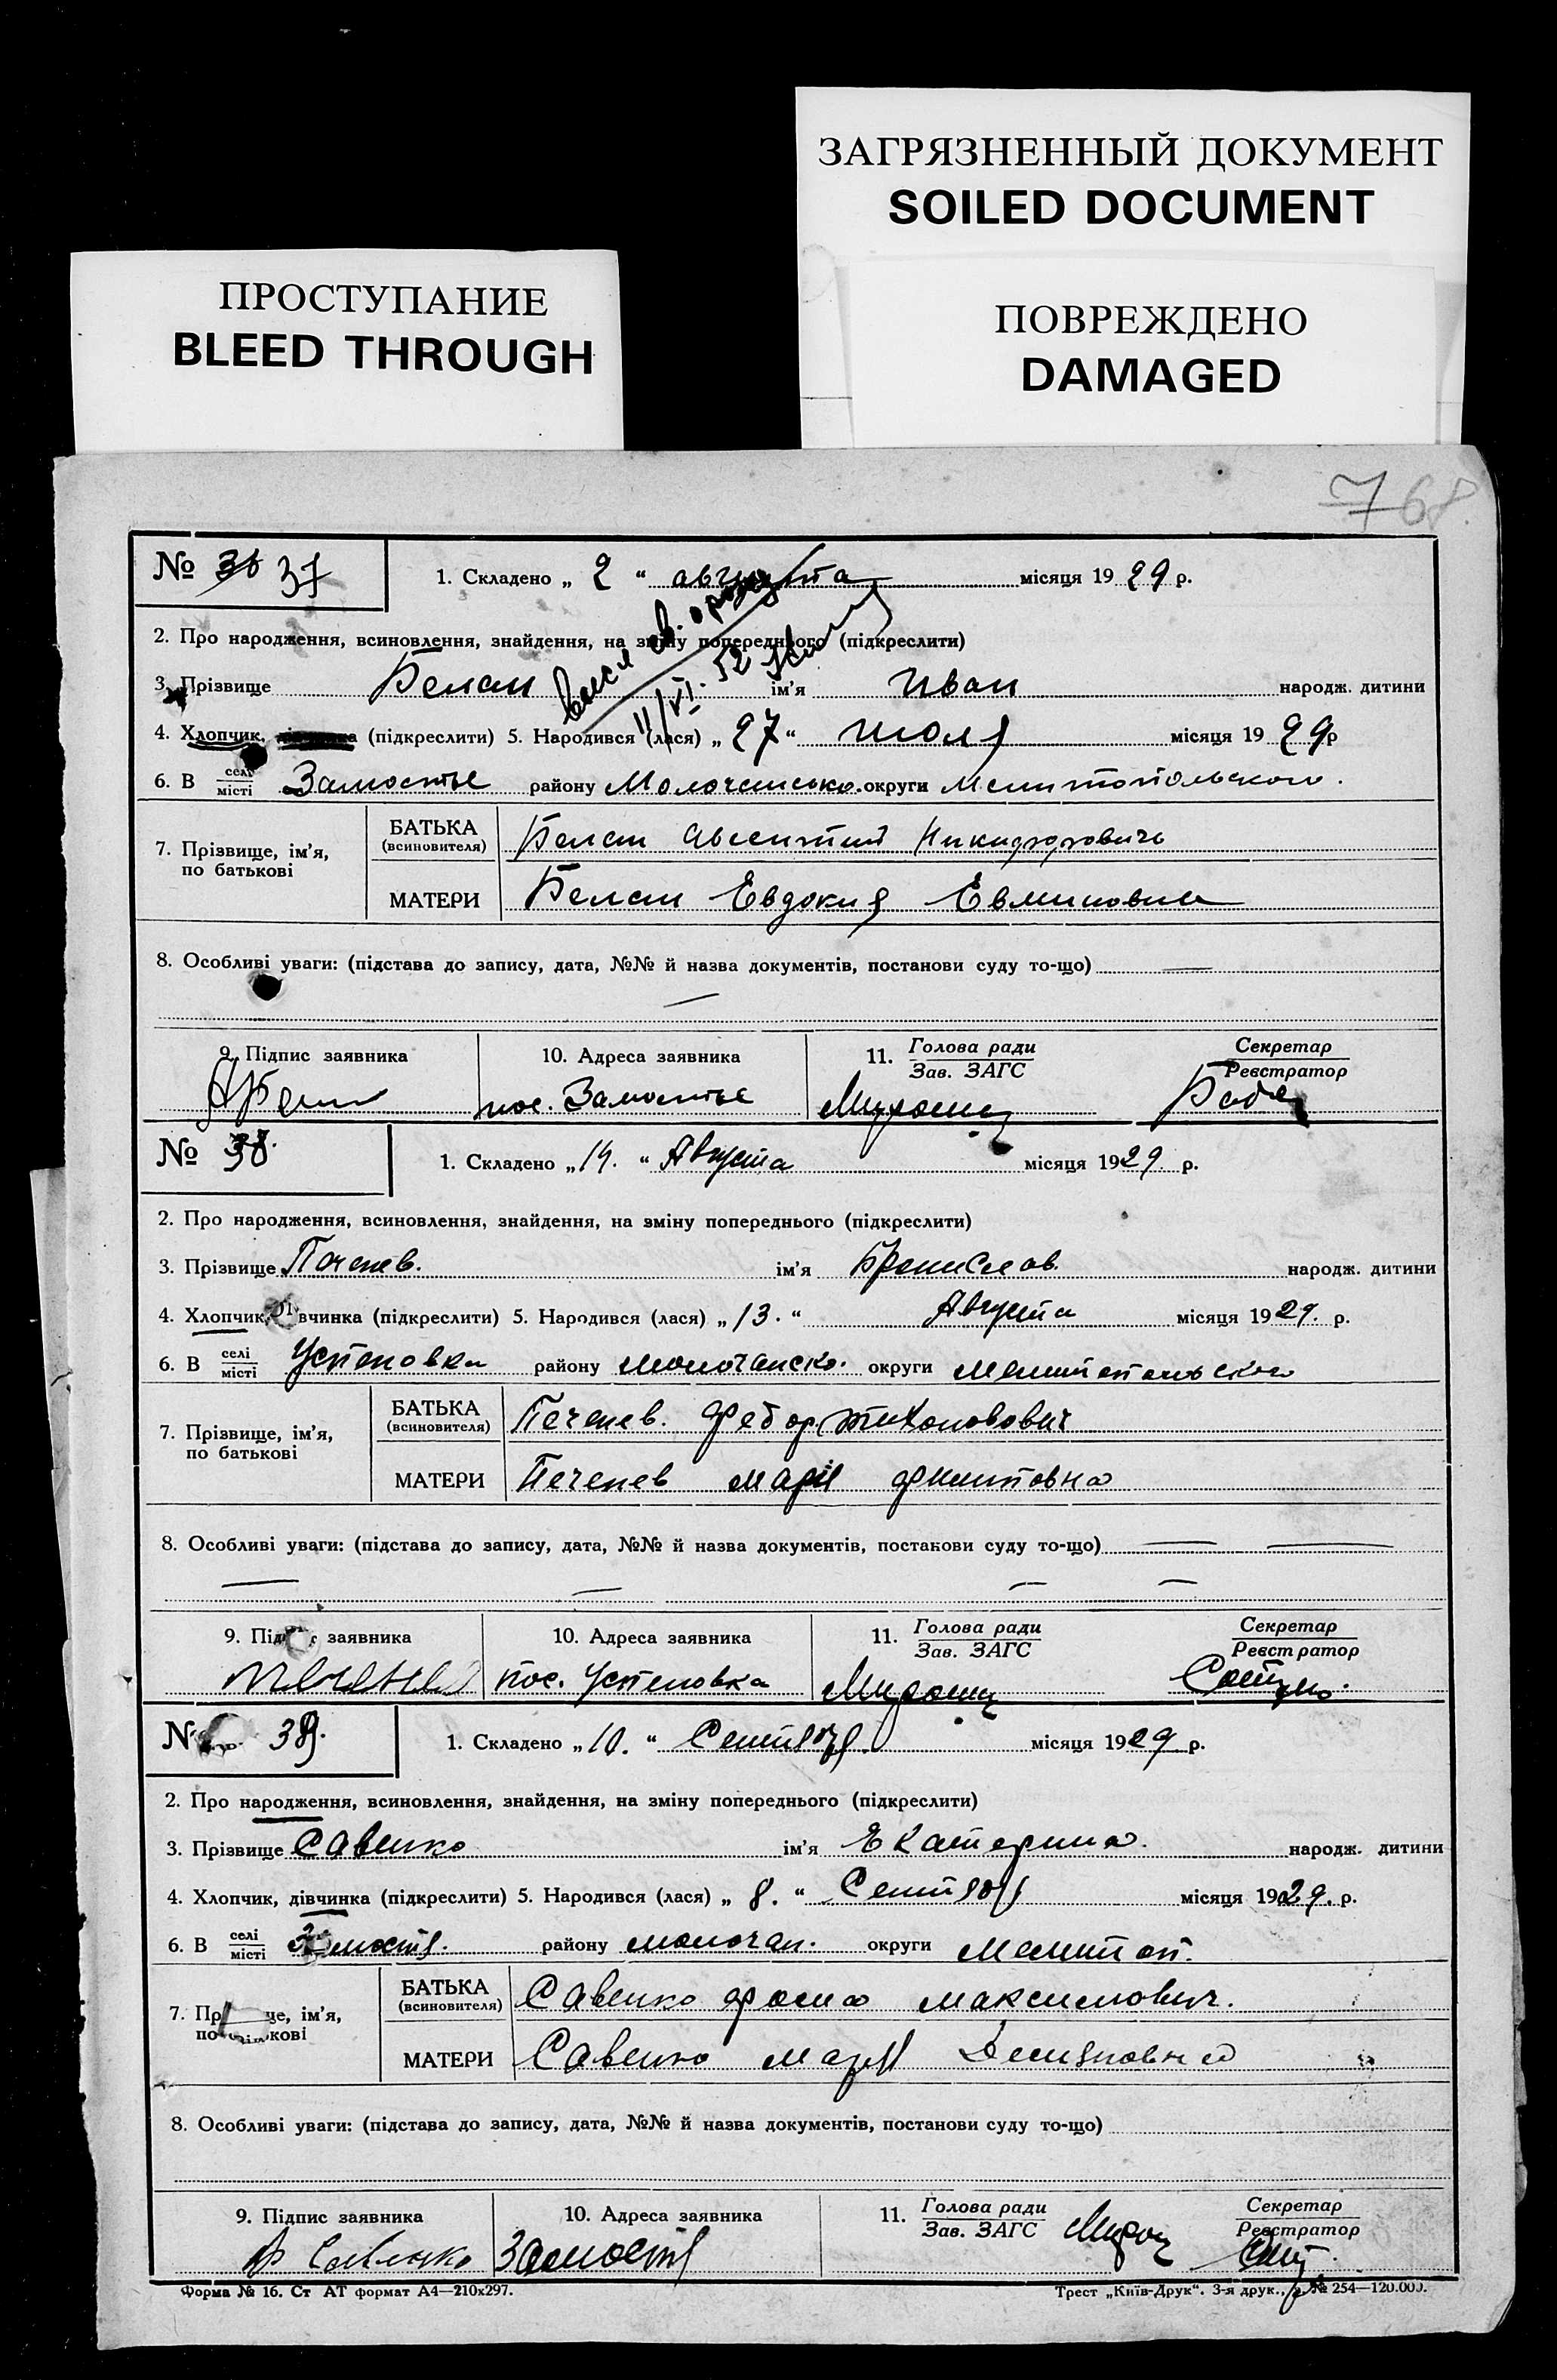 ЗАГРЯЗНЕННЫЙ ДОКУМЕНТ
SOILED DOCUMENT
ПРОСТУПАНИЕ
BLEED THROUGH
ПОВРЕЖДЕНО
DAMAGED
768
№ 36 37
1. Складено „ 2 “ августа місяця 1929 р.
2. Про народження, всиновлення, знайдення, на зміну попереднього (підкреслити)
11/VI. 52
3. Прізвище Белан ім'я Иван народж. дитини
4. Хлопчик, (підкреслити) 5. Народився (лася) „ 27 “ июля місяця 1929 р
6. В селі/місті Замостье району Молоченсько. округи Мелитопольского.
7. Прізвище, ім'я, по батькові
БАТЬКА (всиновителя) Белан Никифорович
МАТЕРИ Белан Евдокия
8. Особливі уваги: (підстава до запису, дата, №№ й назва документів, постанови суду то-що) —
—
9. Підпис заявника 10. Адреса заявника 11. Голова ради/Зав. ЗАГС Секретар/Реєстратор
пос. Замостье
№ 38.
1. Складено „ 14. “ Августа місяця 1929. р.
2. Про народження, всиновлення, знайдення, на зміну попереднього (підкреслити)
3. Прізвище Печенев. ім'я Бронислав. народж. дитини
4. Хлопчик, вчинка (підкреслити) 5. Народився (лася) „ 13. “ Августа місяця 1929. р.
6. В селі/місті Успеновка району молочанско. округи Мелитопольского
7. Прізвище, ім'я, по батькові
БАТЬКА (всиновителя) Печенев. Федор Тихонович
МАТЕРИ Печенев Мария Филиповна
8. Особливі уваги: (підстава до запису, дата, №№ й назва документів, постанови суду то-що) — —
— — — —
9. Підпис заявника 10. Адреса заявника 11. Голова ради/Зав. ЗАГС Секретар/Реєстратор
пос. Успеновка
№ 39.
1. Складено „ 10. “ Сентября. місяця 1929 р.
2. Про народження, всиновлення, знайдення, на зміну попереднього (підкреслити)
3. Прізвище Савенко ім'я Екатерина. народж. дитини
4. Хлопчик, дівчинка (підкреслити) 5. Народився (лася) „ 8. “ Сентября місяця 1929. р.
6. В селі/місті Замостя. району молочан. округи Мелитоп.
7. Прізвище, ім'я, по батькові
БАТЬКА (всиновителя) Савенко Фома Максимович.
МАТЕРИ Савенко Мария Демяновна
8. Особливі уваги: (підстава до запису, дата, №№ й назва документів, постанови суду то-що)
9. Підпис заявника 10. Адреса заявника 11. Голова ради/Зав. ЗАГС Секретар/Реєстратор
Ф Савенко Замостя
Форма № 16. Ст АТ формат А4—210х297. Трест „Київ-Друк“. 3-я друк., з. № 254—120.000.